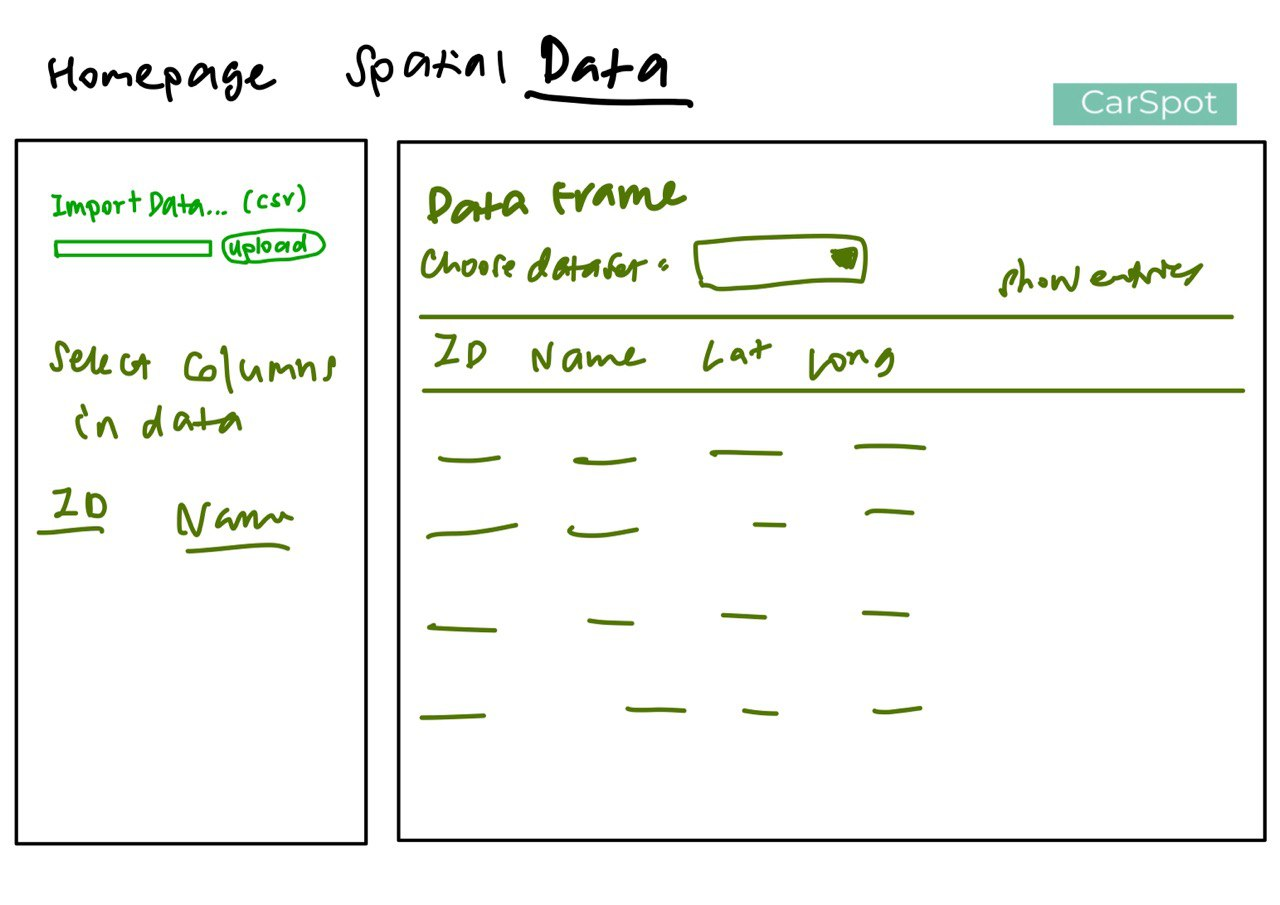 Homepage Spatial Data
CarSpot
Import Data... (csv)
upload
Select Columns
in data
ID Name
Data Frame
Choose dataset:
show entries
ID Name Lat Long